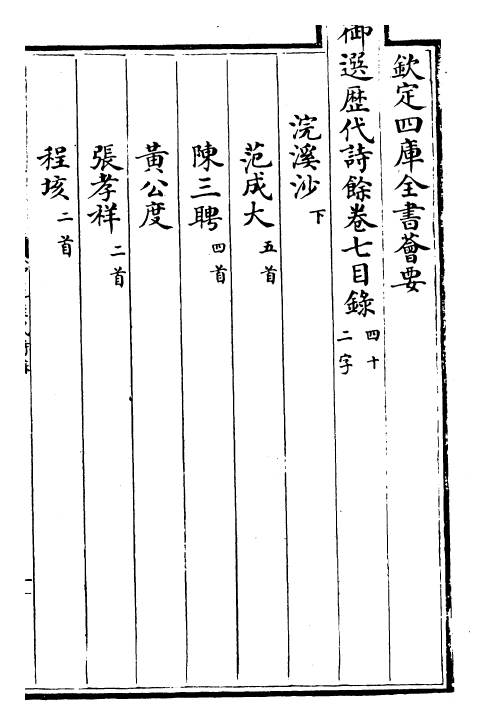 欽定四庫全書薈要
御選歷代詩餘卷七目錄 四十二字
浣溪沙 下
范成大 五首
陳三聘 四首
黃公度
張孝祥 二首
程垓 二首